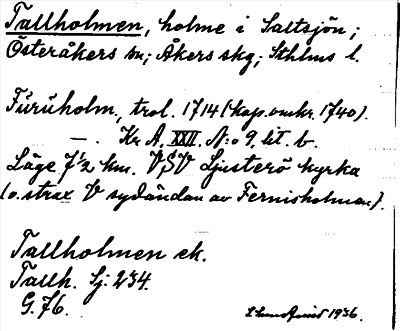 Tallholmen, holme i Saltsjön;
Österåkers sn; Åkers skg; Sthlms l.
Furuholm, trol. 1714 (kop. omkr. 1740).
—. Kr A. XXII. N:o 9. lit. b.
Läge 7½ km. VSV Ljusterö kyrka
(o. strax V sydändan av Fernisholman).
Tallholmen ek.
Tallh. Sj: 234.
G. 76.
1936.